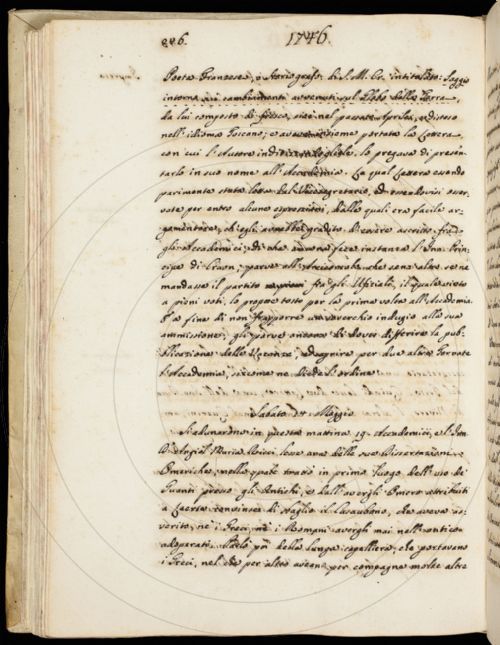 1746.
Poeta Francese, e Storiografo di S. M. Cr. intitolato: Saggio
intorno ai cambiamenti avvenuti sul Globo della Terra,
da lui composto di fresco, cioè nel passato Aprile, e disteso
nell'idioma Toscano; e aveva insieme portata la Lettera
con cui l'Autore indirizzandogliela, lo pregava di presen-
tarlo in suo nome all'Accademia. La qual Lettera essendo
parimente stata letta dal Vicesegretario, ed essendovisi osser-
vate per entro alcune espressioni, dalle quali era facile ar-
gomentare, ch'egli avrebbe gradito di essere ascritto fra
gli Accademici; di che ancora fece instanza l'Ill. Prin-
cipe di Craon; parve all'Arciconsolo, che senz'altro se ne
mandasse il partito fra gli Ufiziali, il quale vinto
a pieni voti, lo propose tosto per la prima volta all'Accademia.
E a fine di non frapporre un soverchio indugio alla sua
ammissione, gli parve ancora di dover differire la pub-
blicazione delle Vacanze, e d'aprire per due altre Tornate
l'Accademia, siccome ne diede l'ordine.
Sabato Maggio
Si adunarono in questa mattina 19. Accademici, e l'Ill.
D. Angiol Maria Ricci lesse una delle sue Dissertazioni
Omeriche, nella quale trattò in primo luogo dell'uso de'
Guanti presso gli Antichi, e dall'avergli Omero attribuiti
a Laerte convinse di sbaglio il Casaubono, che aveva as-
serito, nè i Greci, nè i Romani avergli mai nell'antico
adoperati. Parlò poi della lunga capelliera, che portavano
i Greci, nel che per altro aveano per compagne molte altre